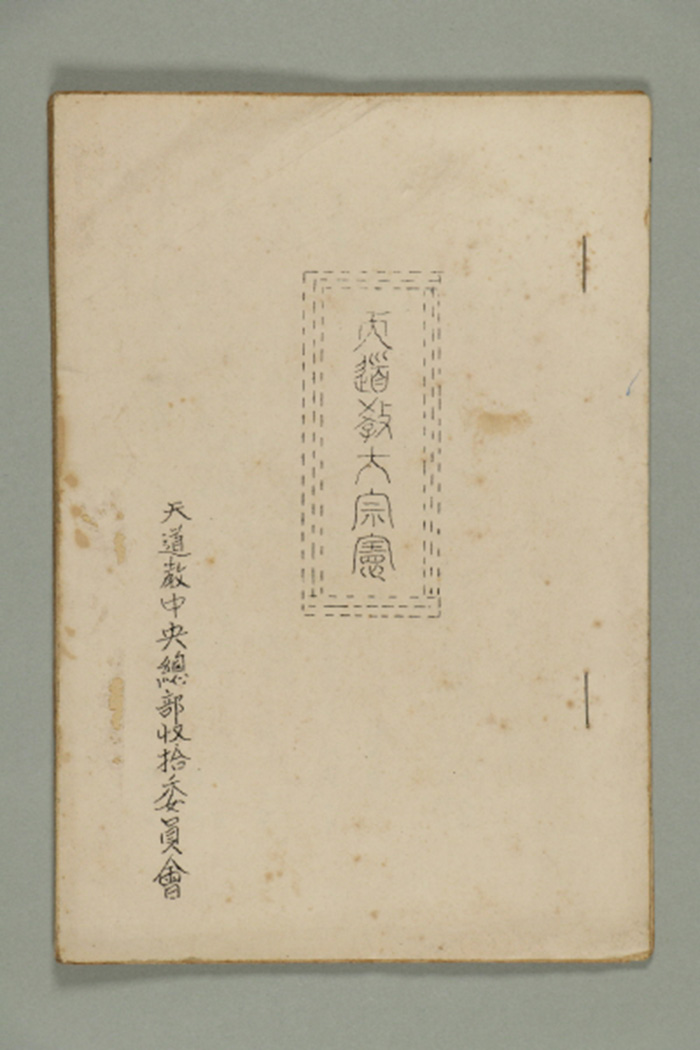 天道教大宗憲
天道教中央總部收拾委員會